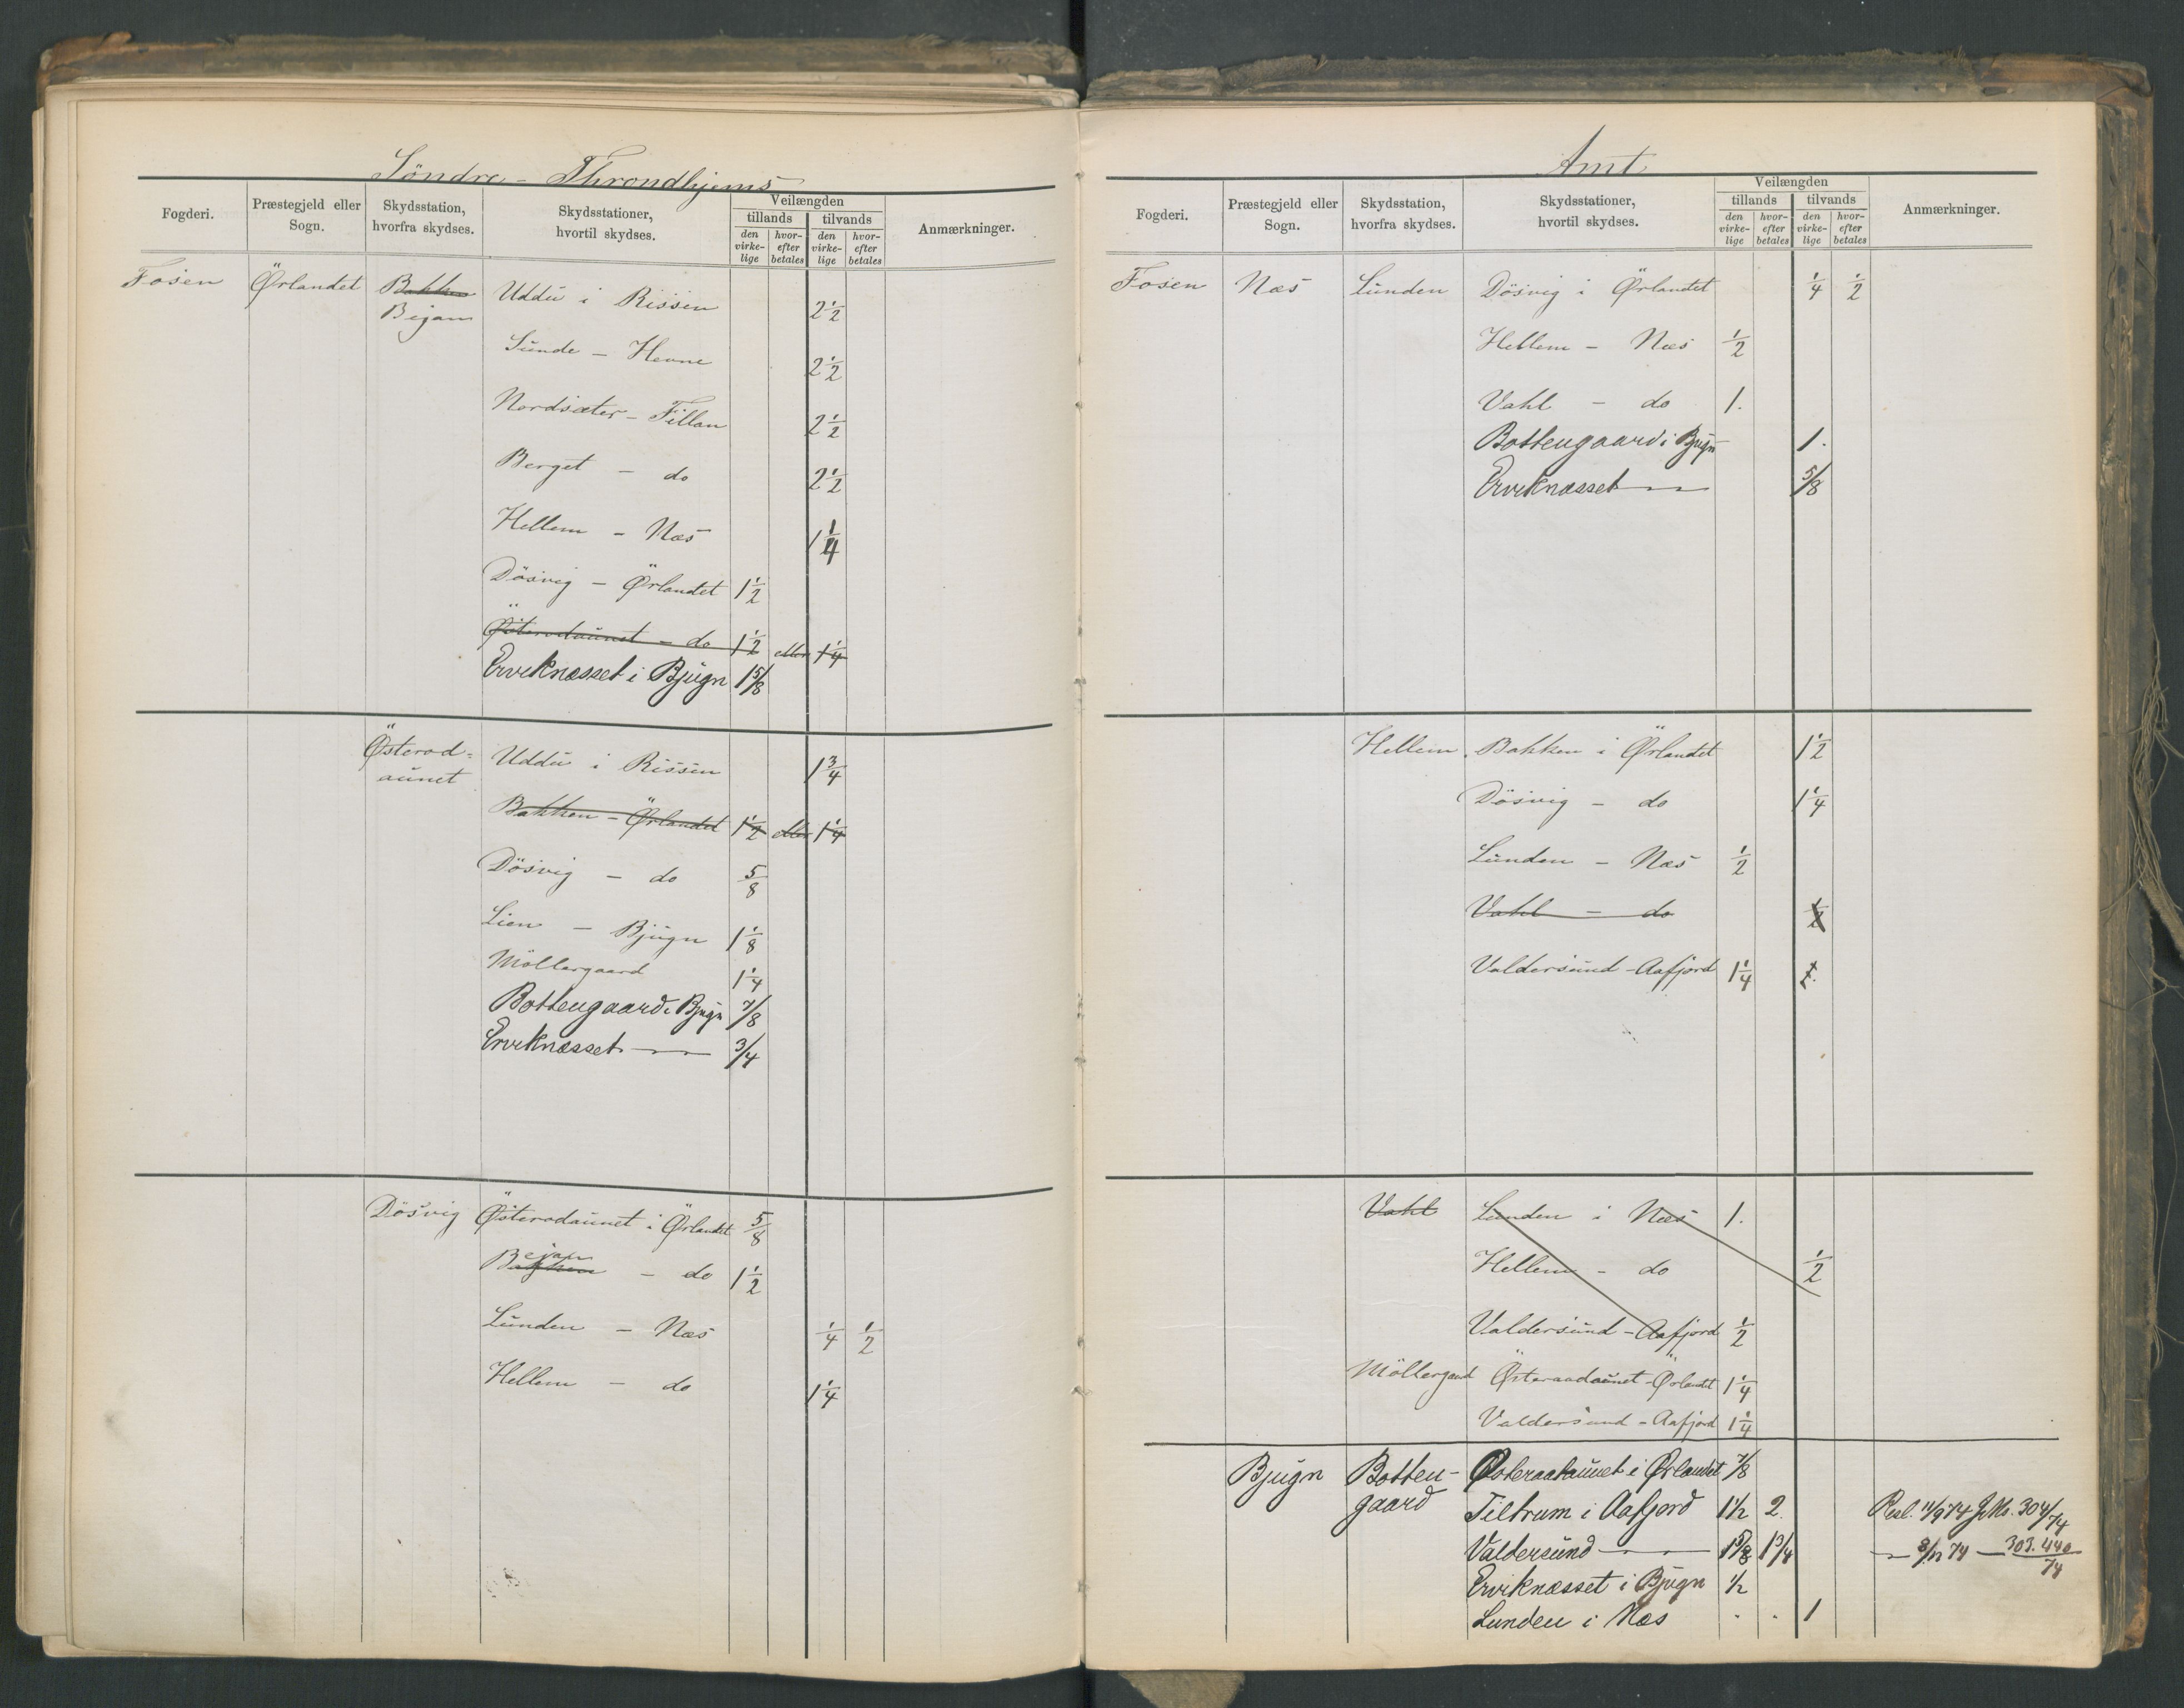 Söndre - Throndhjems
Fogderi. Præstegjeld eller Sogn. Skydsstation, hvorfra skydses. Skydsstationer, hvortil skydses. Veilængden Anmærkninger.
tillands tilvands
den virke-lige hvor-efter betales den virke-lige hvor-efter betales
Fosen Ørlandet Bakken Uddu i Rissen 2 1/2
Bejan
Sunde - Hevne 2 1/2
Nordsæter - Fillan 2 1/2
Berget - do 2 1/2
Hellem - Næs 1 1/4
Dösvig - Ørlandet 1 1/2
Österodaunet - do 1 1/2 eller 1 1/4
Erviknæsset i Bjugn 1 5/8
Österod= Uddu i Rissen 1 3/4
aunet
Bakken - Ørlandet 1 1/2 eller 1 1/4
Dösvig - do 5/8
Lien - Bjugn 1 1/8
Möllergaard 1 1/4
Bottengaard i Bjugn 7/8
Erviknæsset — " — 3/4
Dösvig Österodaunet i Ørlandet 5/8
Bejan
Bakken - do 1 1/2
Lunden - Næs 1/4 1/2
Hellem - do 1 1/4
Amt
Fogderi. Præstegjeld eller Sogn. Skydsstation, hvorfra skydses. Skydsstationer, hvortil skydses. Veilængden Anmærkninger.
tillands tilvands
den virke-lige hvor-efter betales den virke-lige hvor-efter betales
Fosen Næs Lunden Dösvig i Ørlandet 1/4 1/2
Hellem - Næs 1/2
Vahl - do 1.
Bottengaard i Bjugn 1.
Erviknæsset — " — 5/8
Hellem. Bakken i Ørlandet 1 1/2
Dösvig - do 1 1/4
Lunden - Næs 1/2
Vahl - do 1/2
Valdersund - Aafjord 1 1/4
Vahl Lunden i Næs 1.
Hellem - do 1/2
Valdersund - Aafjord 1/2
Möllergaard Österaadaunet - Ørlandet 1 1/4
Valdersund - Aafjord 1 1/4
Bjugn Botten- Østeraataunet i Ørlandet 7/8
gaard Tiltrum i Aafjord 1 1/2 2. Resl. 11/9 74 J.No. 304/74
Valdersund — " — 1 5/8 1 3/4 — " 8/12 74 — 303.440/74
Erviknæsset i Bjugn 1/2
Lunden i Næs . . 1